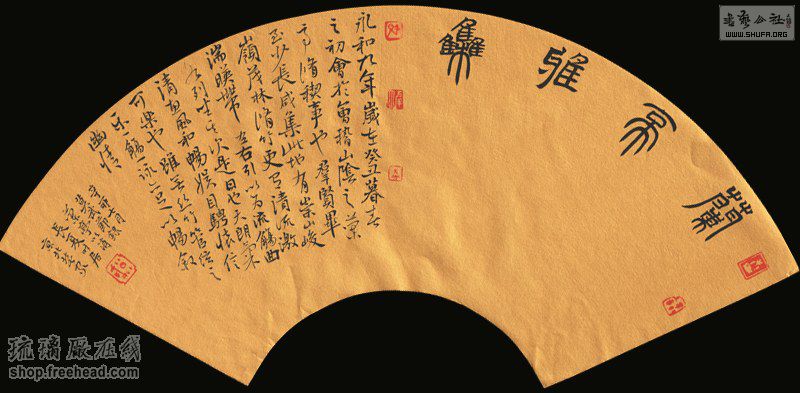 蘭亭雅集
永和九年歲在癸丑暮春
之初會於會稽山陰之蘭
亭脩稧事也羣賢畢
至少長咸集此地有崇山峻
嶺茂林脩竹更有清流激
湍暎帶左右引以為流觴曲
水列坐其次是日也天朗氣
清惠風和暢娛目騁懷信
可樂也雖無絲竹管弦之
樂一觴一詠亦足以暢敘
幽情
辛卯
書藝公社
WWW.SHUFA.ORG
琉璃廠在线
shop.freehead.com